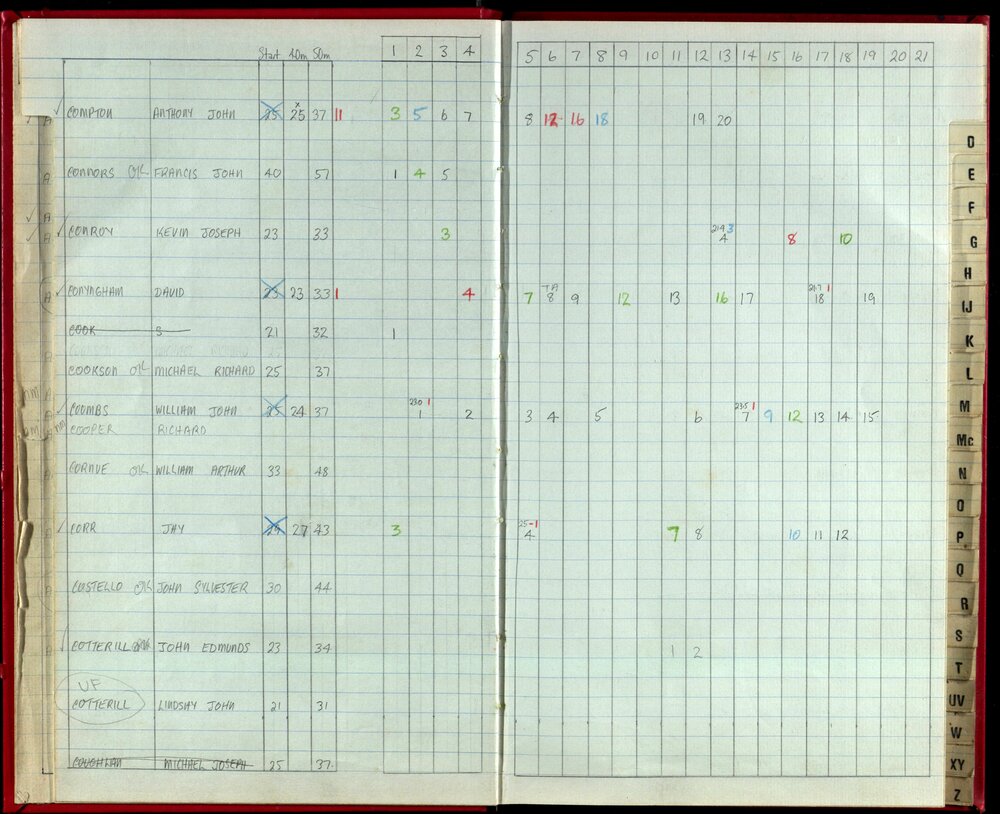 Start 40m 50m 1 2 3 4 5 6 7 8 9 10 11 12 13 14 15 16 17 18 19 20 21
A COMPTON ANTHONY JOHN 25 x 25 37 11 3 5 6 7 8 12 16 18 19 20
A CONNORS FRANCIS JOHN 40 57 1 4 5
A
A CONROY KEVIN JOSEPH 23 33 3 4 8 10
A CONYNGHAM DAVID 23 23 33 1 4 7 TA 8 9 12 13 16 17 18 19
COOK S 21 32 1
A
COOKSON MICHAEL RICHARD 25 37
A
A COOMBS WILLIAM JOHN 25 24 37 230 1 1 2 3 4 5 6 235 1 7 9 12 13 14 15
COOPER RICHARD
A CORNUE WILLIAM ARTHUR 33 48
A CORR JAY 27 43 3 25-1 4 7 8 10 11 12
COSTELLO JOHN SYLVESTER 30 44
COTTERILL JOHN EDMUNDS 23 34 1 2
UF
COTTERILL LINDSAY JOHN 21 31
COUGHLAN MICHAEL JOSEPH 25 37
D
E
F
G
H
IJ
K
L
M
Mc
N
O
P
Q
R
S
T
UV
W
XY
Z